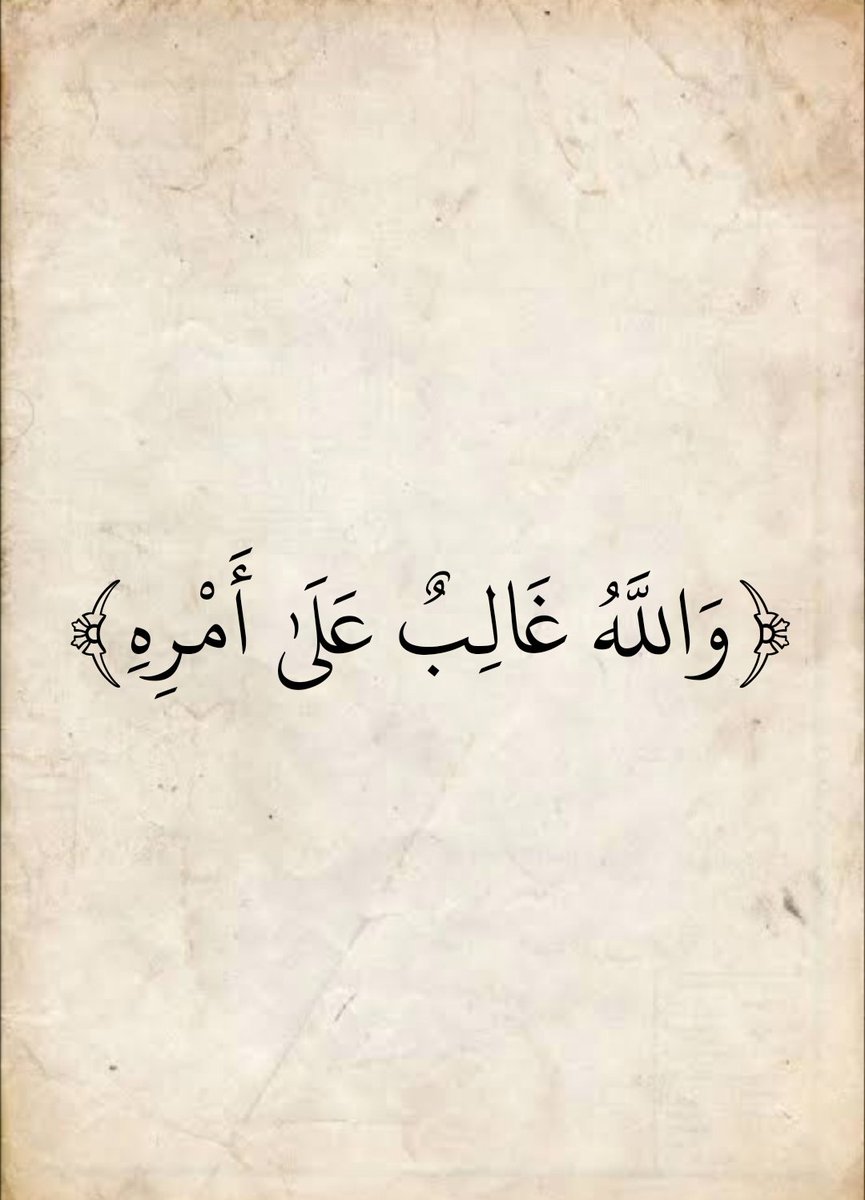 ﴿وَاللَّهُ غَالِبٌ عَلَىٰ أَمْرِهِ﴾